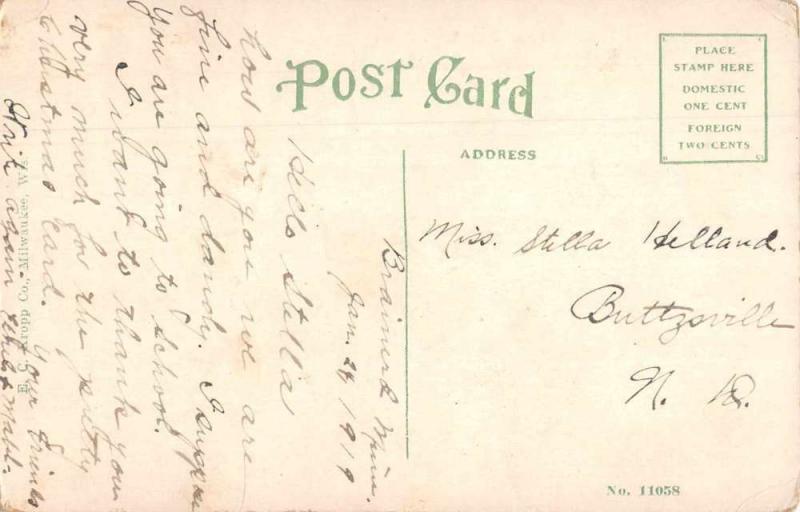 POST CARD
PLACE
STAMP HERE
DOMESTIC
ONE CENT
FOREIGN
TWO CENTS
ADDRESS
Miss. Stella Helland.
Buttzville
N. D.
Brainerd Minn.
Jan. 24 1919
Hello Stella
how are you we are
fine and dandy. I suppose
you are going to school.
I want to thank you
very much for the pretty
Christmas Card. Your friends
Write again.
E. C. Kropp Co., Milwaukee, Wis.
No. 11058